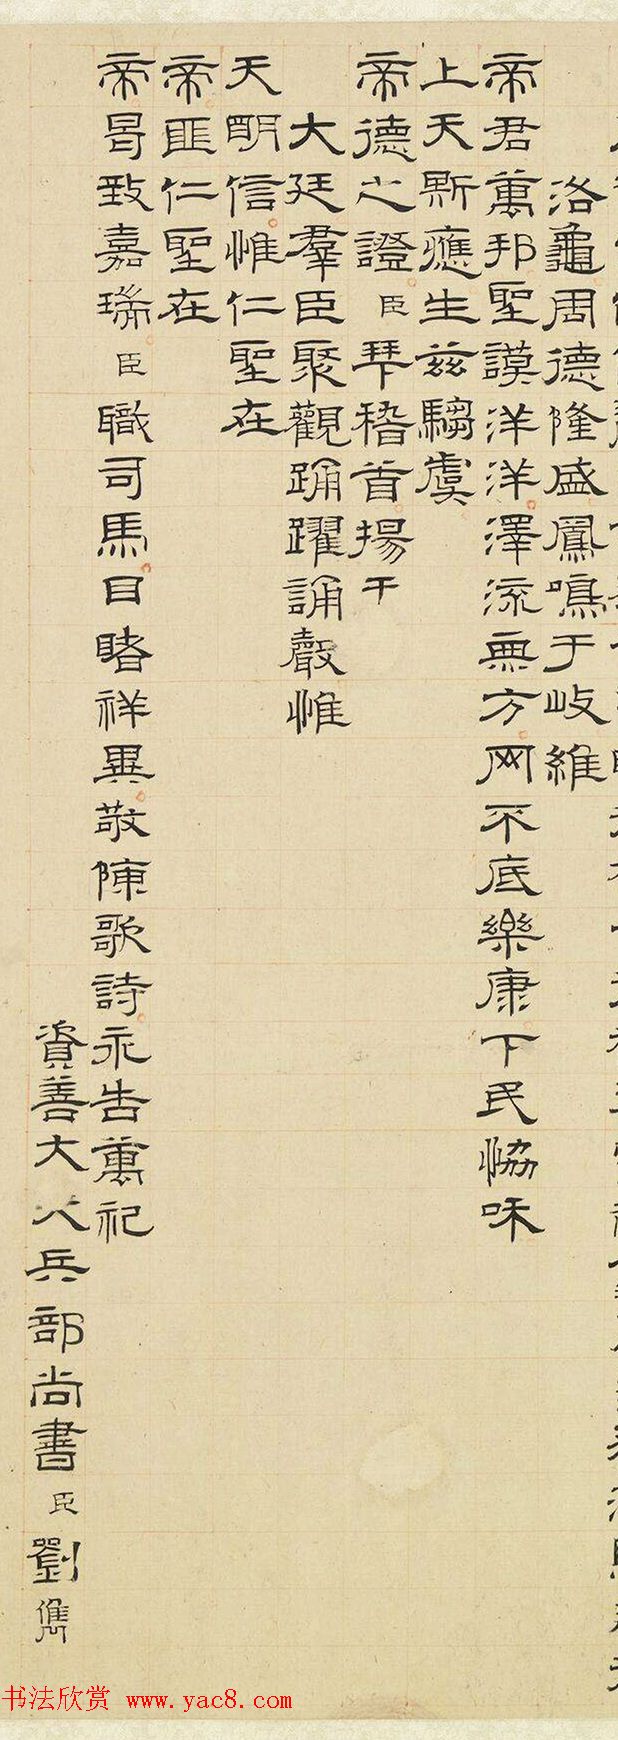 洛龜周德隆盛鳳鳴于岐維
帝君萬邦聖謨洋洋澤流無方网不底樂康下民恊咊
上天斯應生茲騶虞
帝德之證臣拜稽首揚于
大廷羣臣聚觀踊躍誦聲惟
天朙信惟仁聖在
帝匪仁聖在
帝曷致嘉瑞臣職司馬目睹祥異敬陳歌詩永告萬祀
資善大夫兵部尚書臣劉儁
书法欣赏 www.yac8.com